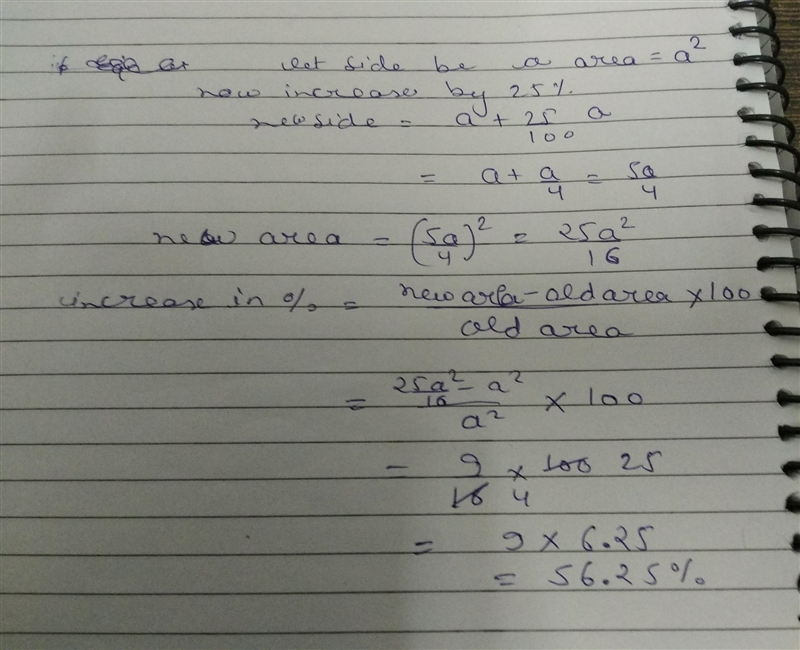 let side be a area = a²
now increase by 25%.
new side = a + 25/100 a
= a + a/4 = 5a/4
new area = (5a/4)² = 25a²/16
increase in % = new area - old area/old area × 100
= 25a²/16 - a²/a² × 100
= 9/16 4 × 100 25
= 9 × 6.25
= 56.25%